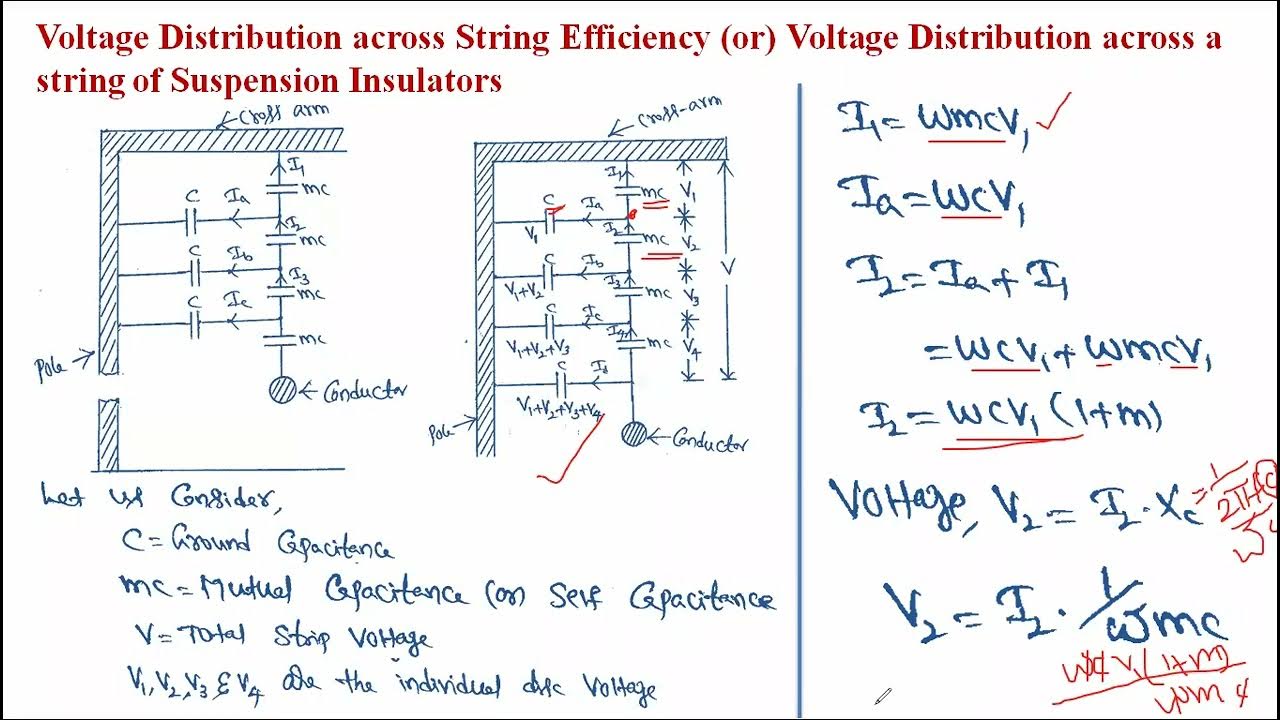 Voltage Distribution across String Efficiency (or) Voltage Distribution across a
string of Suspension Insulators
Cross arm
I1
mc
C
Ia
I2
mc
C
Ib
I3
mc
C
Ic
mc
Pole
Conductor
Cross-arm
I1
mc
V1
C
Ia
V1
I2
mc
V2
V
C
Ib
V1+V2
I3
mc
V3
C
Ic
V1+V2+V3
I4
mc
V4
C
V1+V2+V3+V4
Pole
Conductor
Let us Consider,
C = Ground Capacitance
mc = Mutual Capacitance (or) Self Capacitance
V = Total Strip Voltage
V1, V2, V3 & V4 are the individual disc Voltage
I1 = ωmcV1 ✓
Ia = ωcV1
I2 = Ia + I1
= ωcV1 + ωmcV1
I2 = ωcV1 (1+m)
Voltage, V2 = I2 · Xc = 1/
V2 = I2 · 1/ωmc
ωcV1(1+m)
ωmc